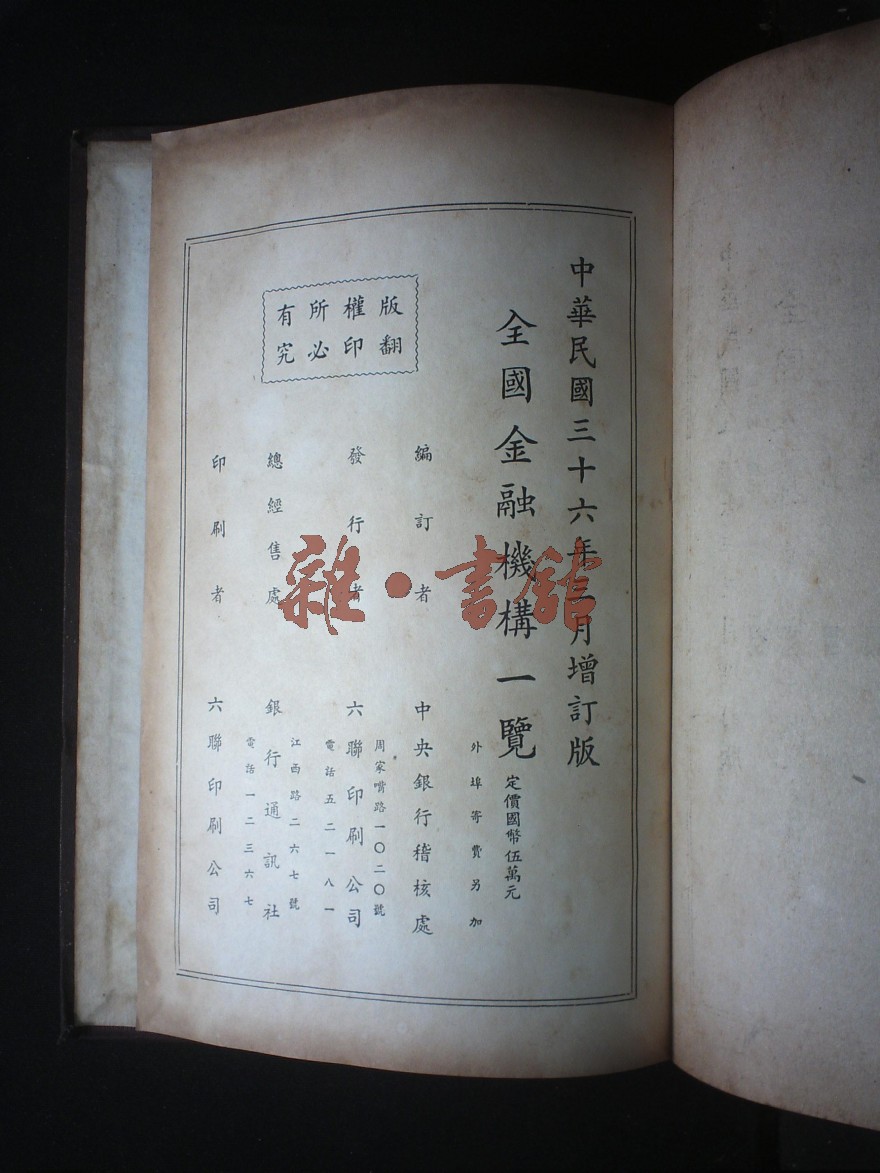 中華民國三十六年二月增訂版
全國金融機構一覽
定價國幣伍萬元
外埠寄費另加
編訂者 中央銀行稽核處
發行者 六聯印刷公司
周家嘴路一〇二〇號
電話五二一八一
總經售處 銀行通訊社
江西路二六七號
電話一二三六七
印刷者 六聯印刷公司
版權所有
翻印必究
雜·書館